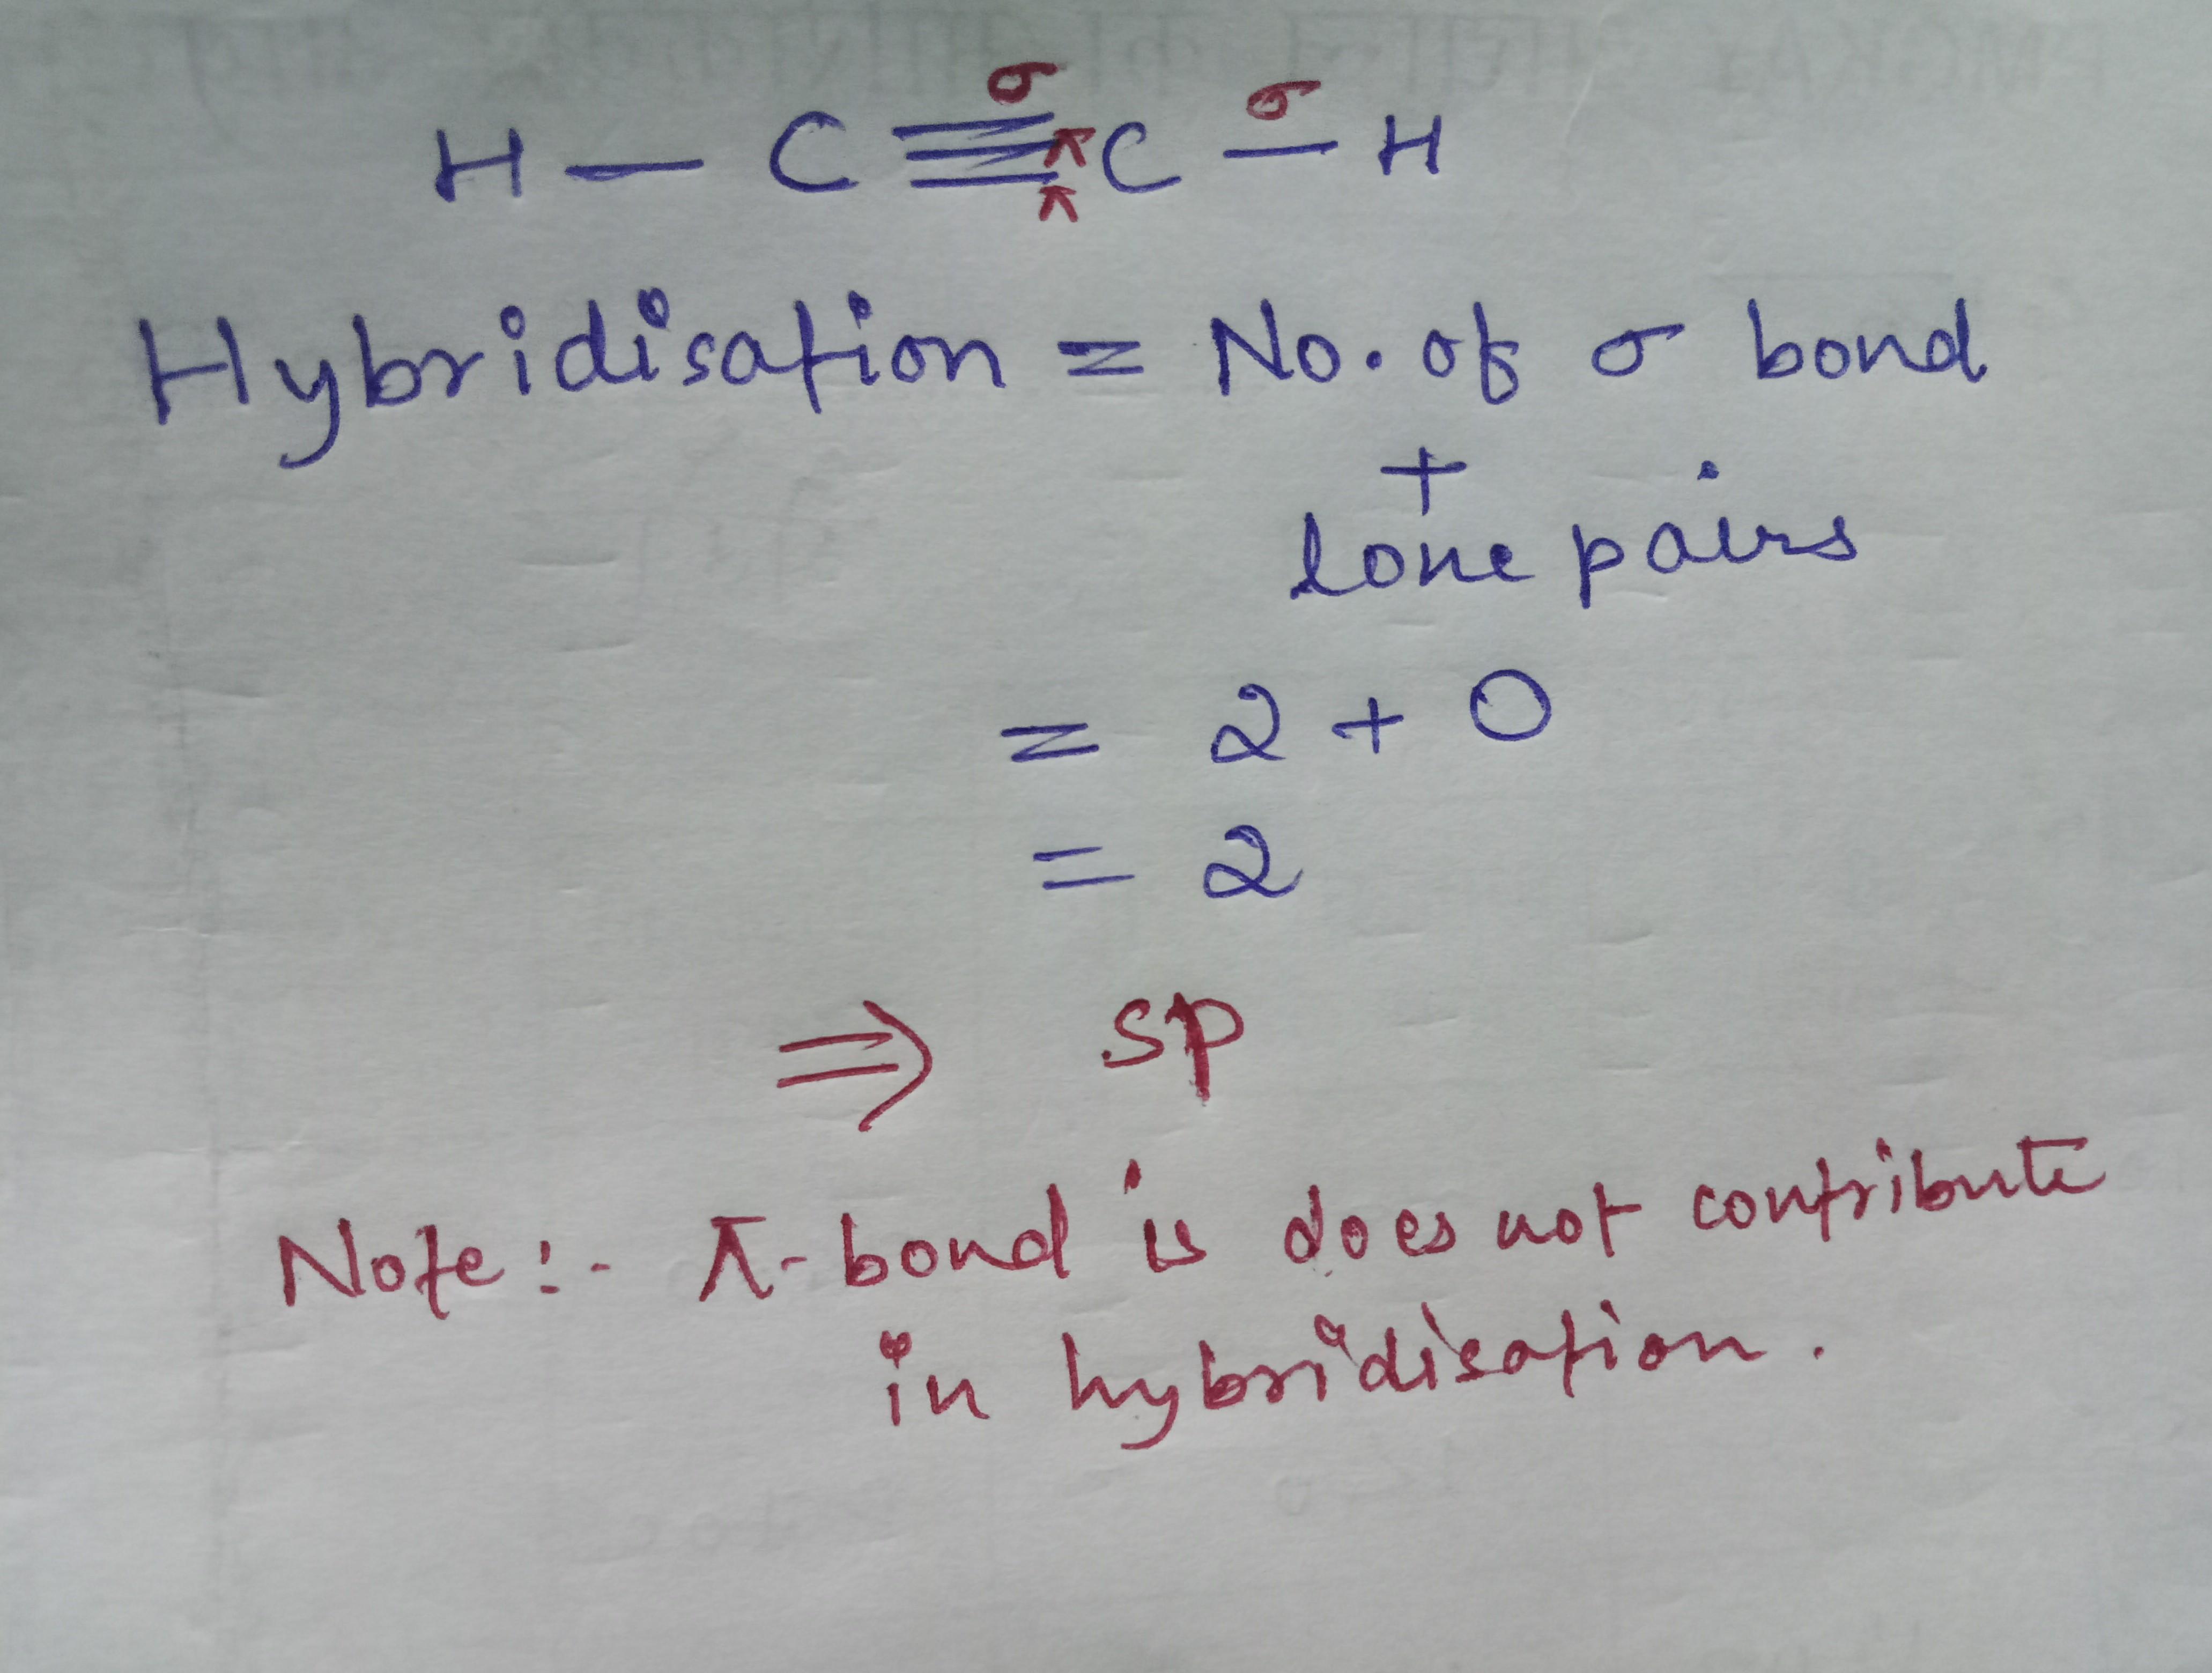 σ σ
H — C ≡ C — H
π
π
Hybridisation = No. of σ bond
+
lone pairs
= 2 + 0
= 2
⇒ sp
Note :- π-bond is does not contribute
in hybridisation.